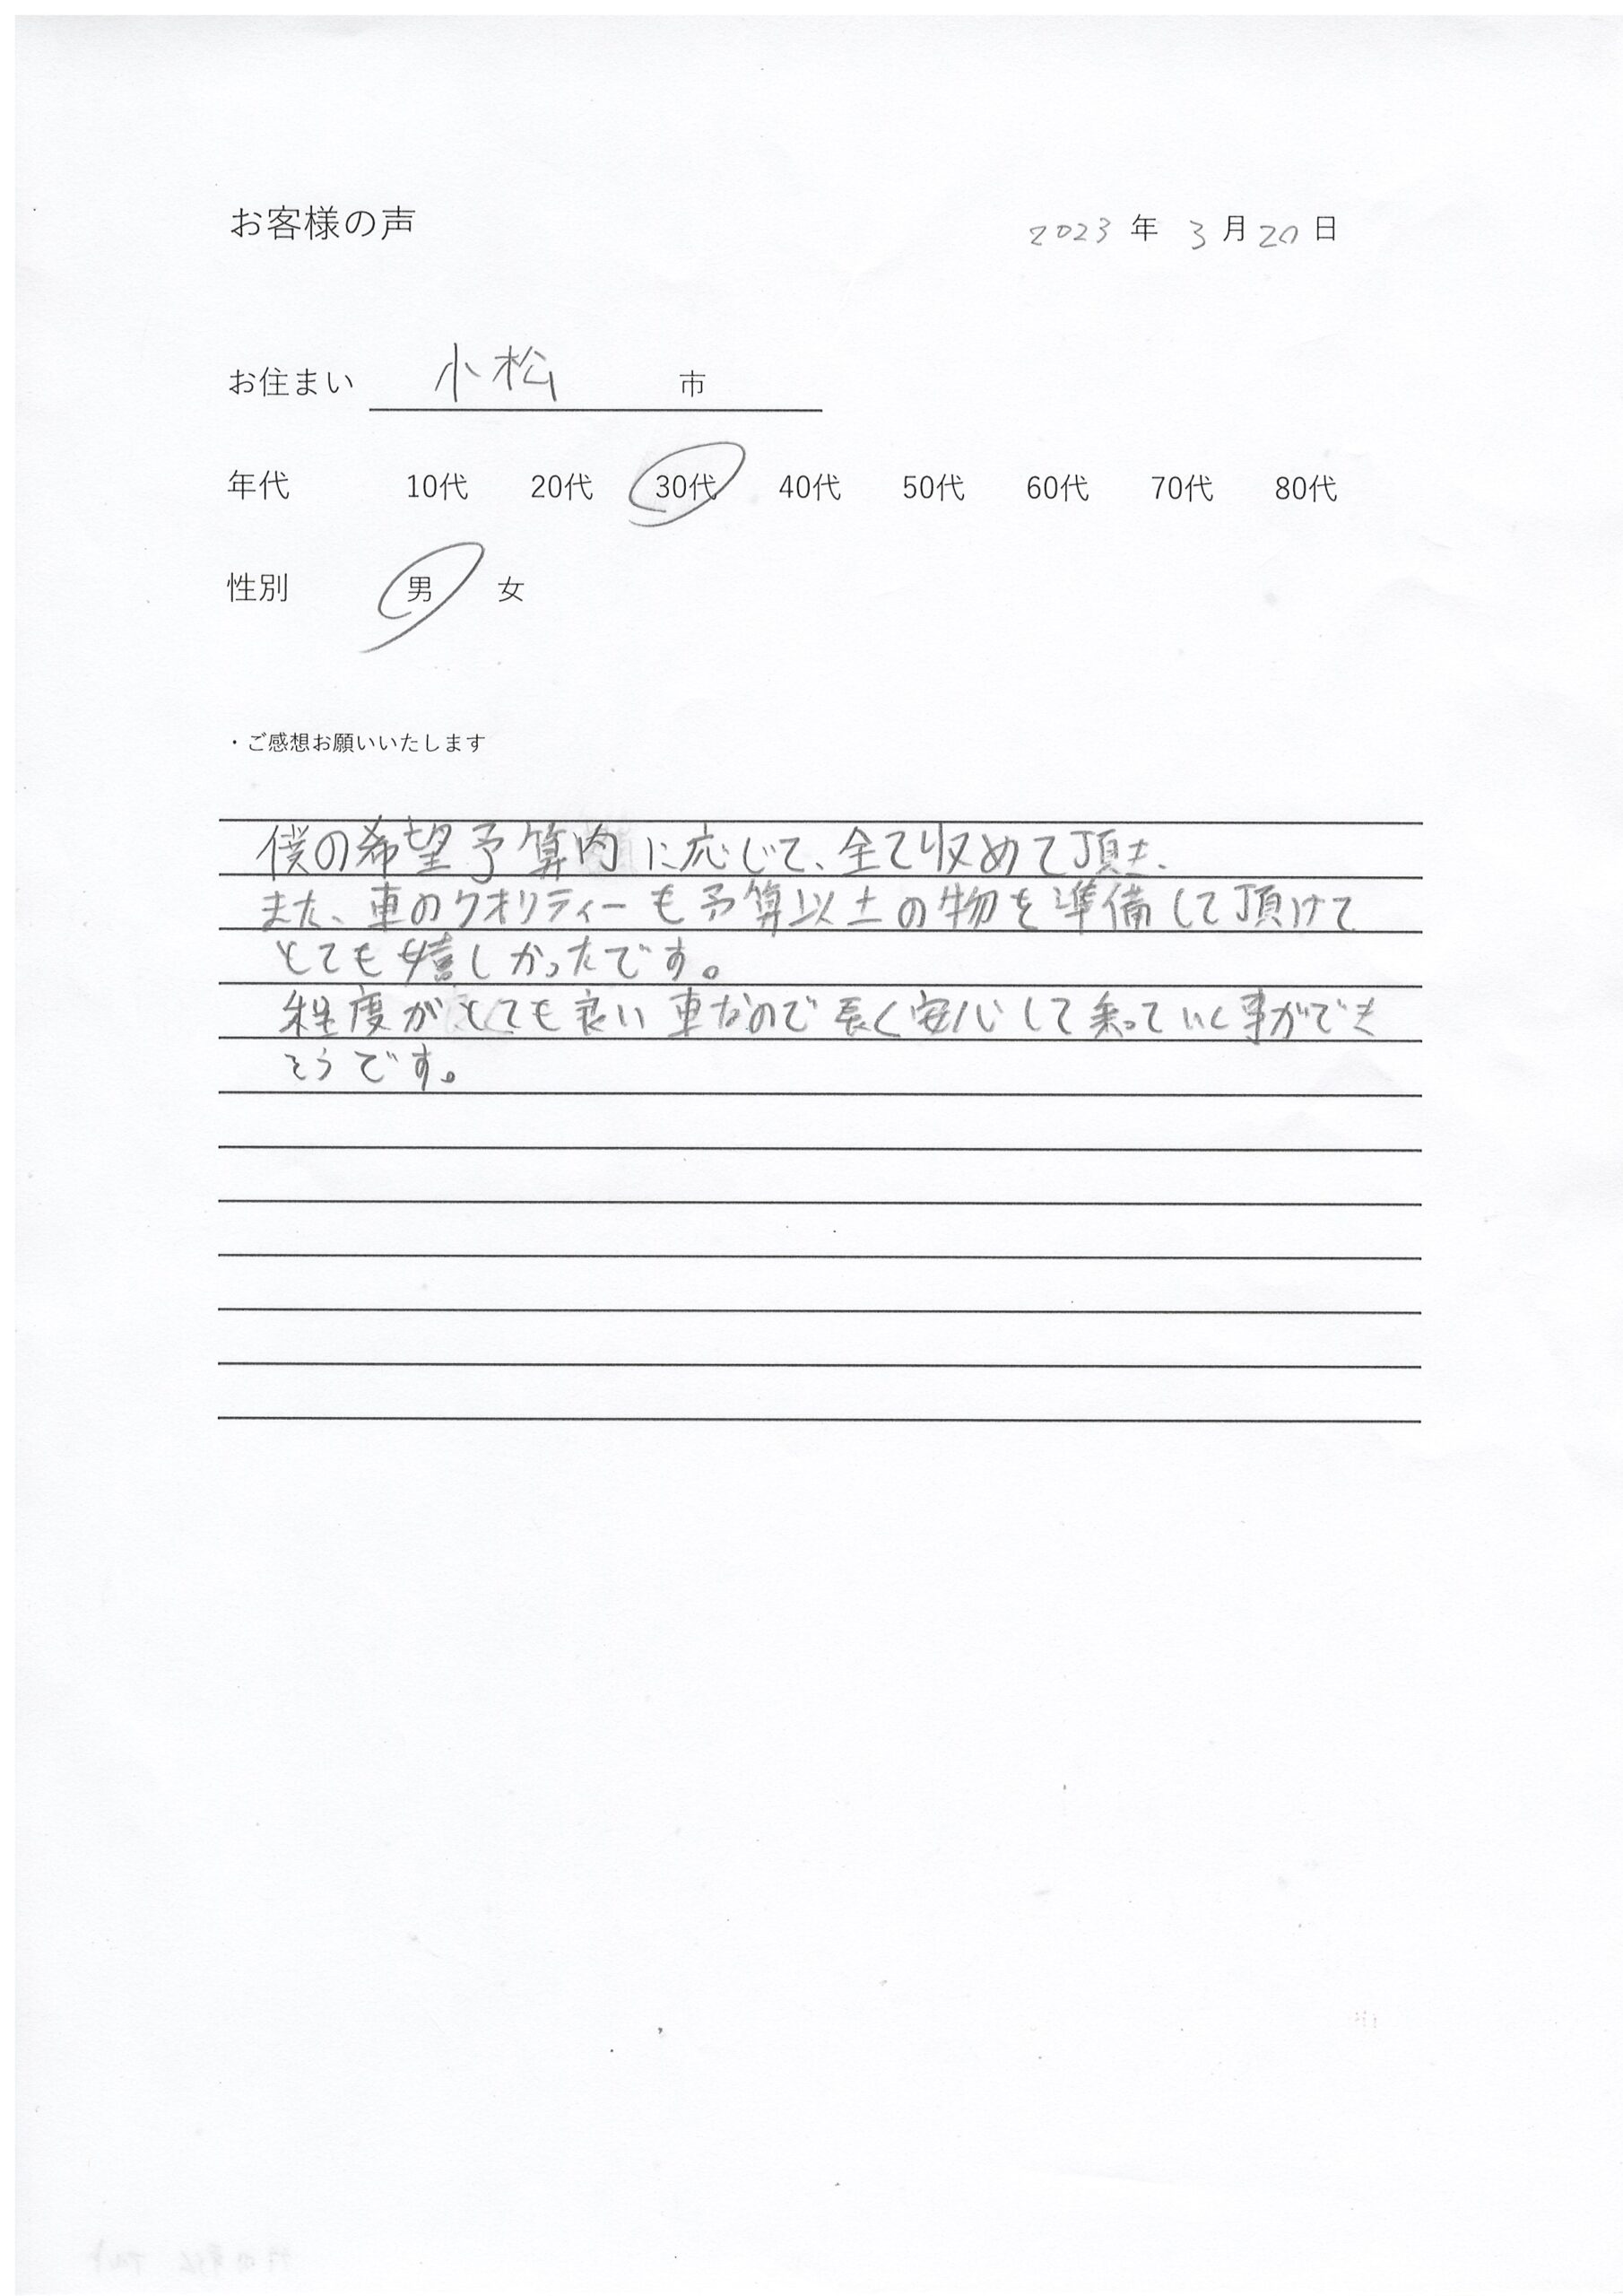 お客様の声
2023 年 3 月 20 日
お住まい 小松 市
年代 10代 20代 30代 40代 50代 60代 70代 80代
性別 男 女
・ご感想お願いいたします
僕の希望予算内に応じて、全て収めて頂き、
また、車のクオリティーも予算以上の物を準備して頂けて
とても嬉しかったです。
程度がとても良い車なので長く安心して乗っていく事ができ
そうです。